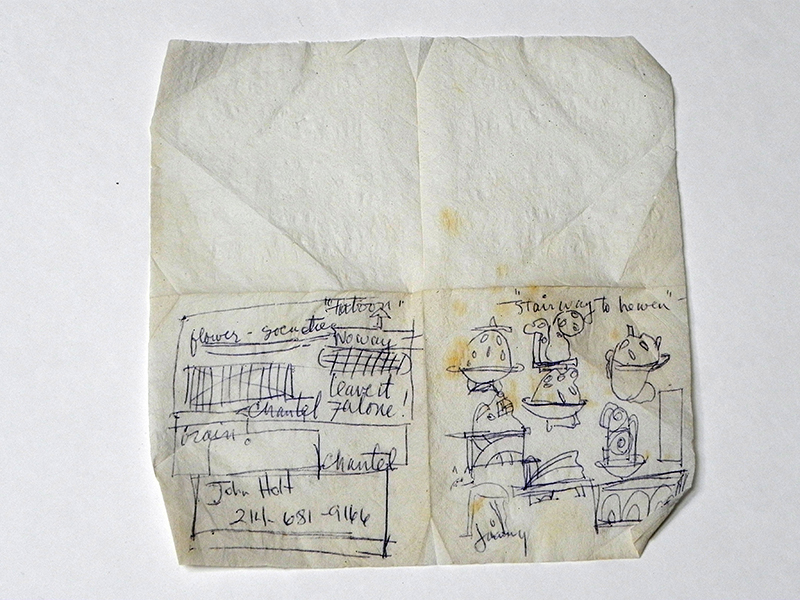 "Tattoo
flower -
No way
leave it
alone!
Chantel
brain?
Chantel
John Holt
214-681-9166
"Stairway to heven"
Jimmy